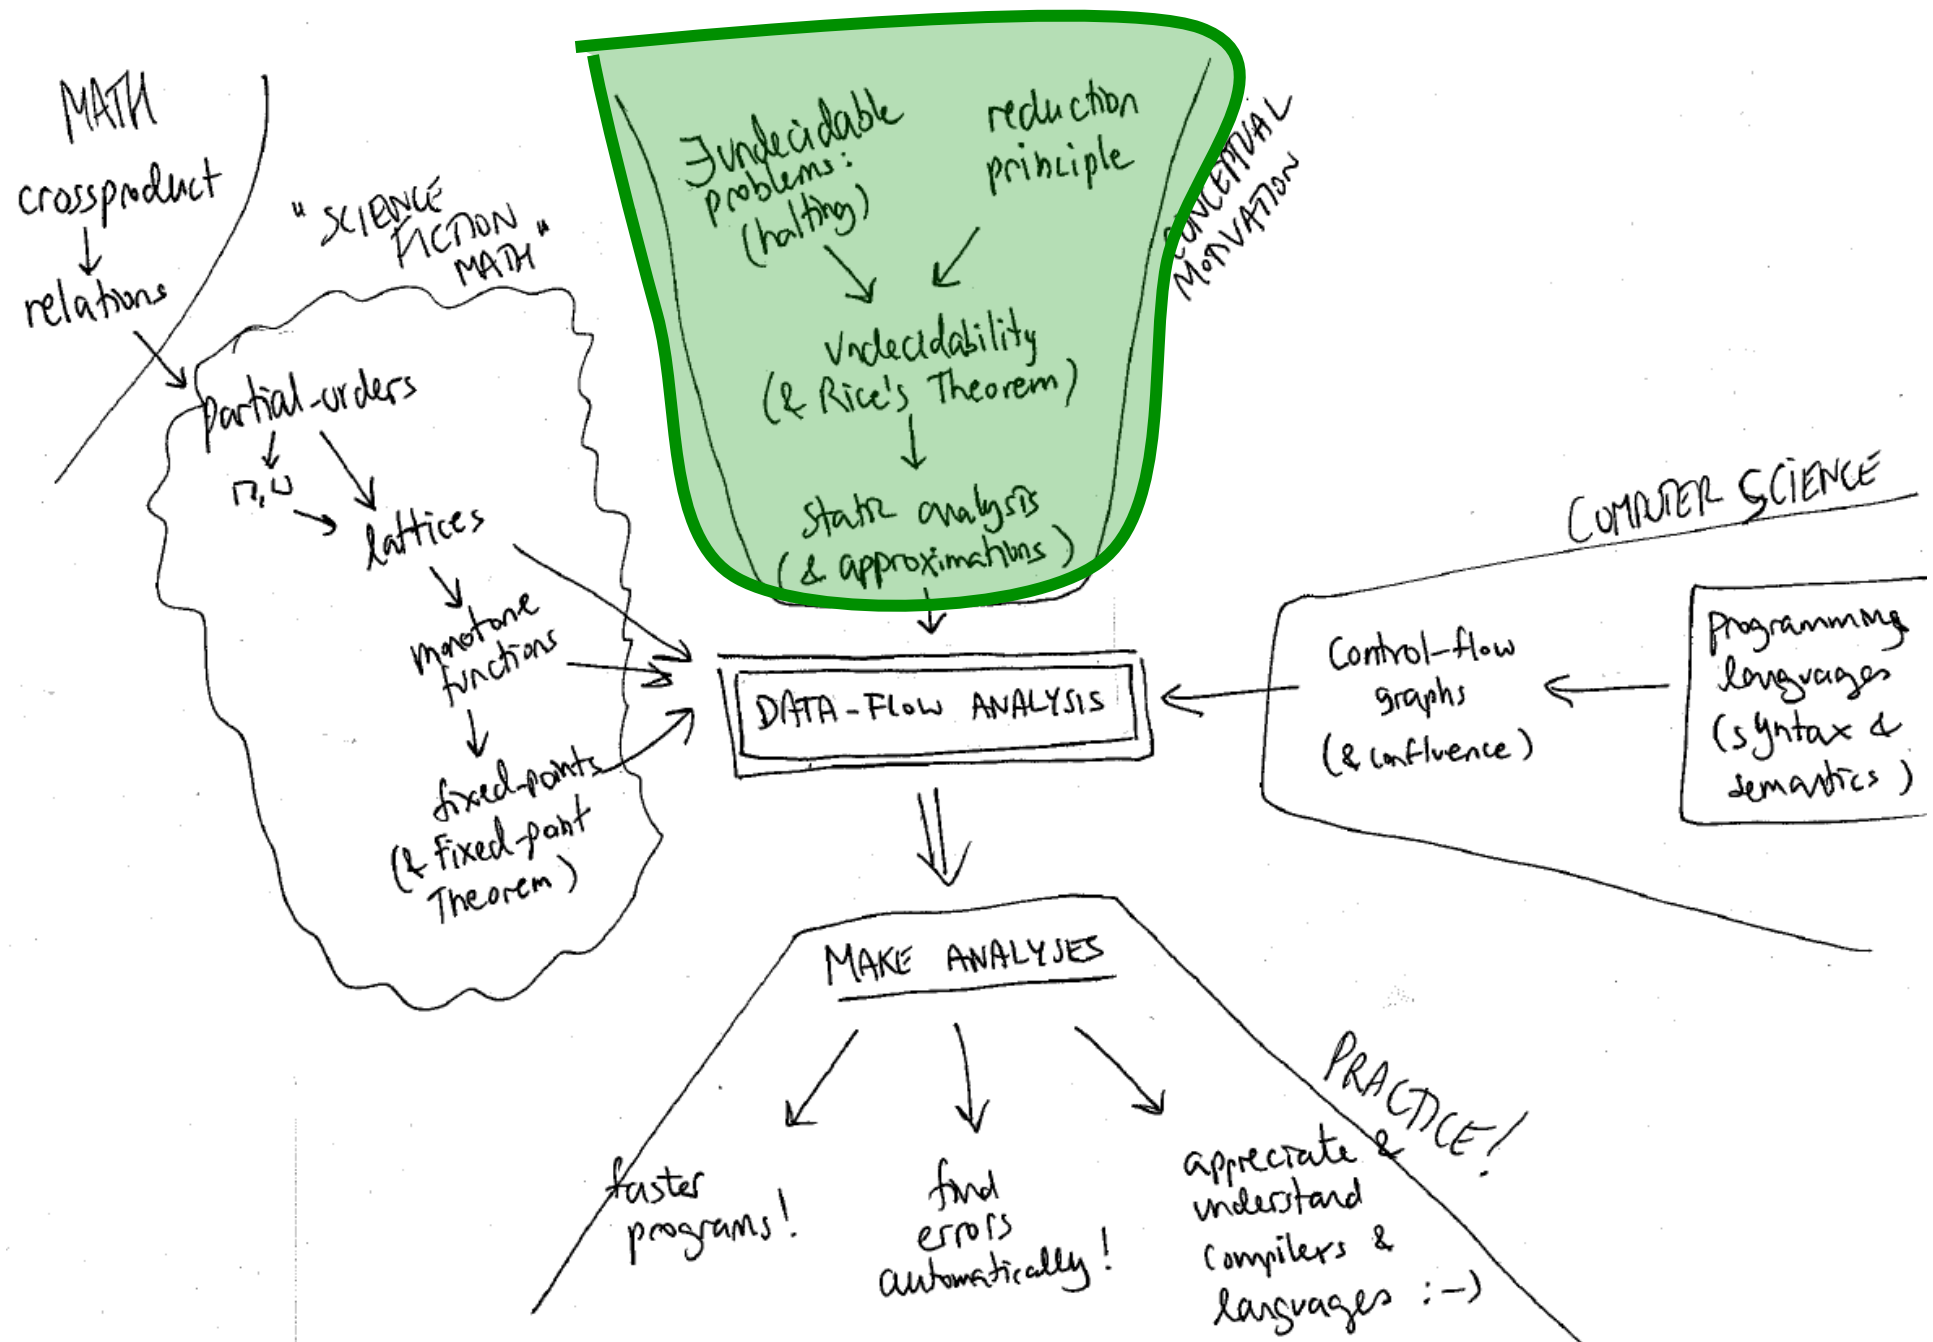 MATH
crossproduct
relations
"SCIENCE
FICTION
MATH"
partial-orders
⊓,⊔
lattices
monotone
functions
fixed-points
(& Fixed-point
Theorem)
∃ undecidable
problems:
(halting)
reduction
principle
Undecidability
(& Rice's Theorem)
static analysis
(& approximations)
CONCEPTUAL
MOTIVATION
DATA-FLOW ANALYSIS
COMPUTER SCIENCE
Control-flow
graphs
(& confluence)
programming
languages
(syntax &
semantics)
MAKE ANALYSES
PRACTICE!
faster
programs!
find
errors
automatically!
appreciate &
understand
compilers &
languages :-)